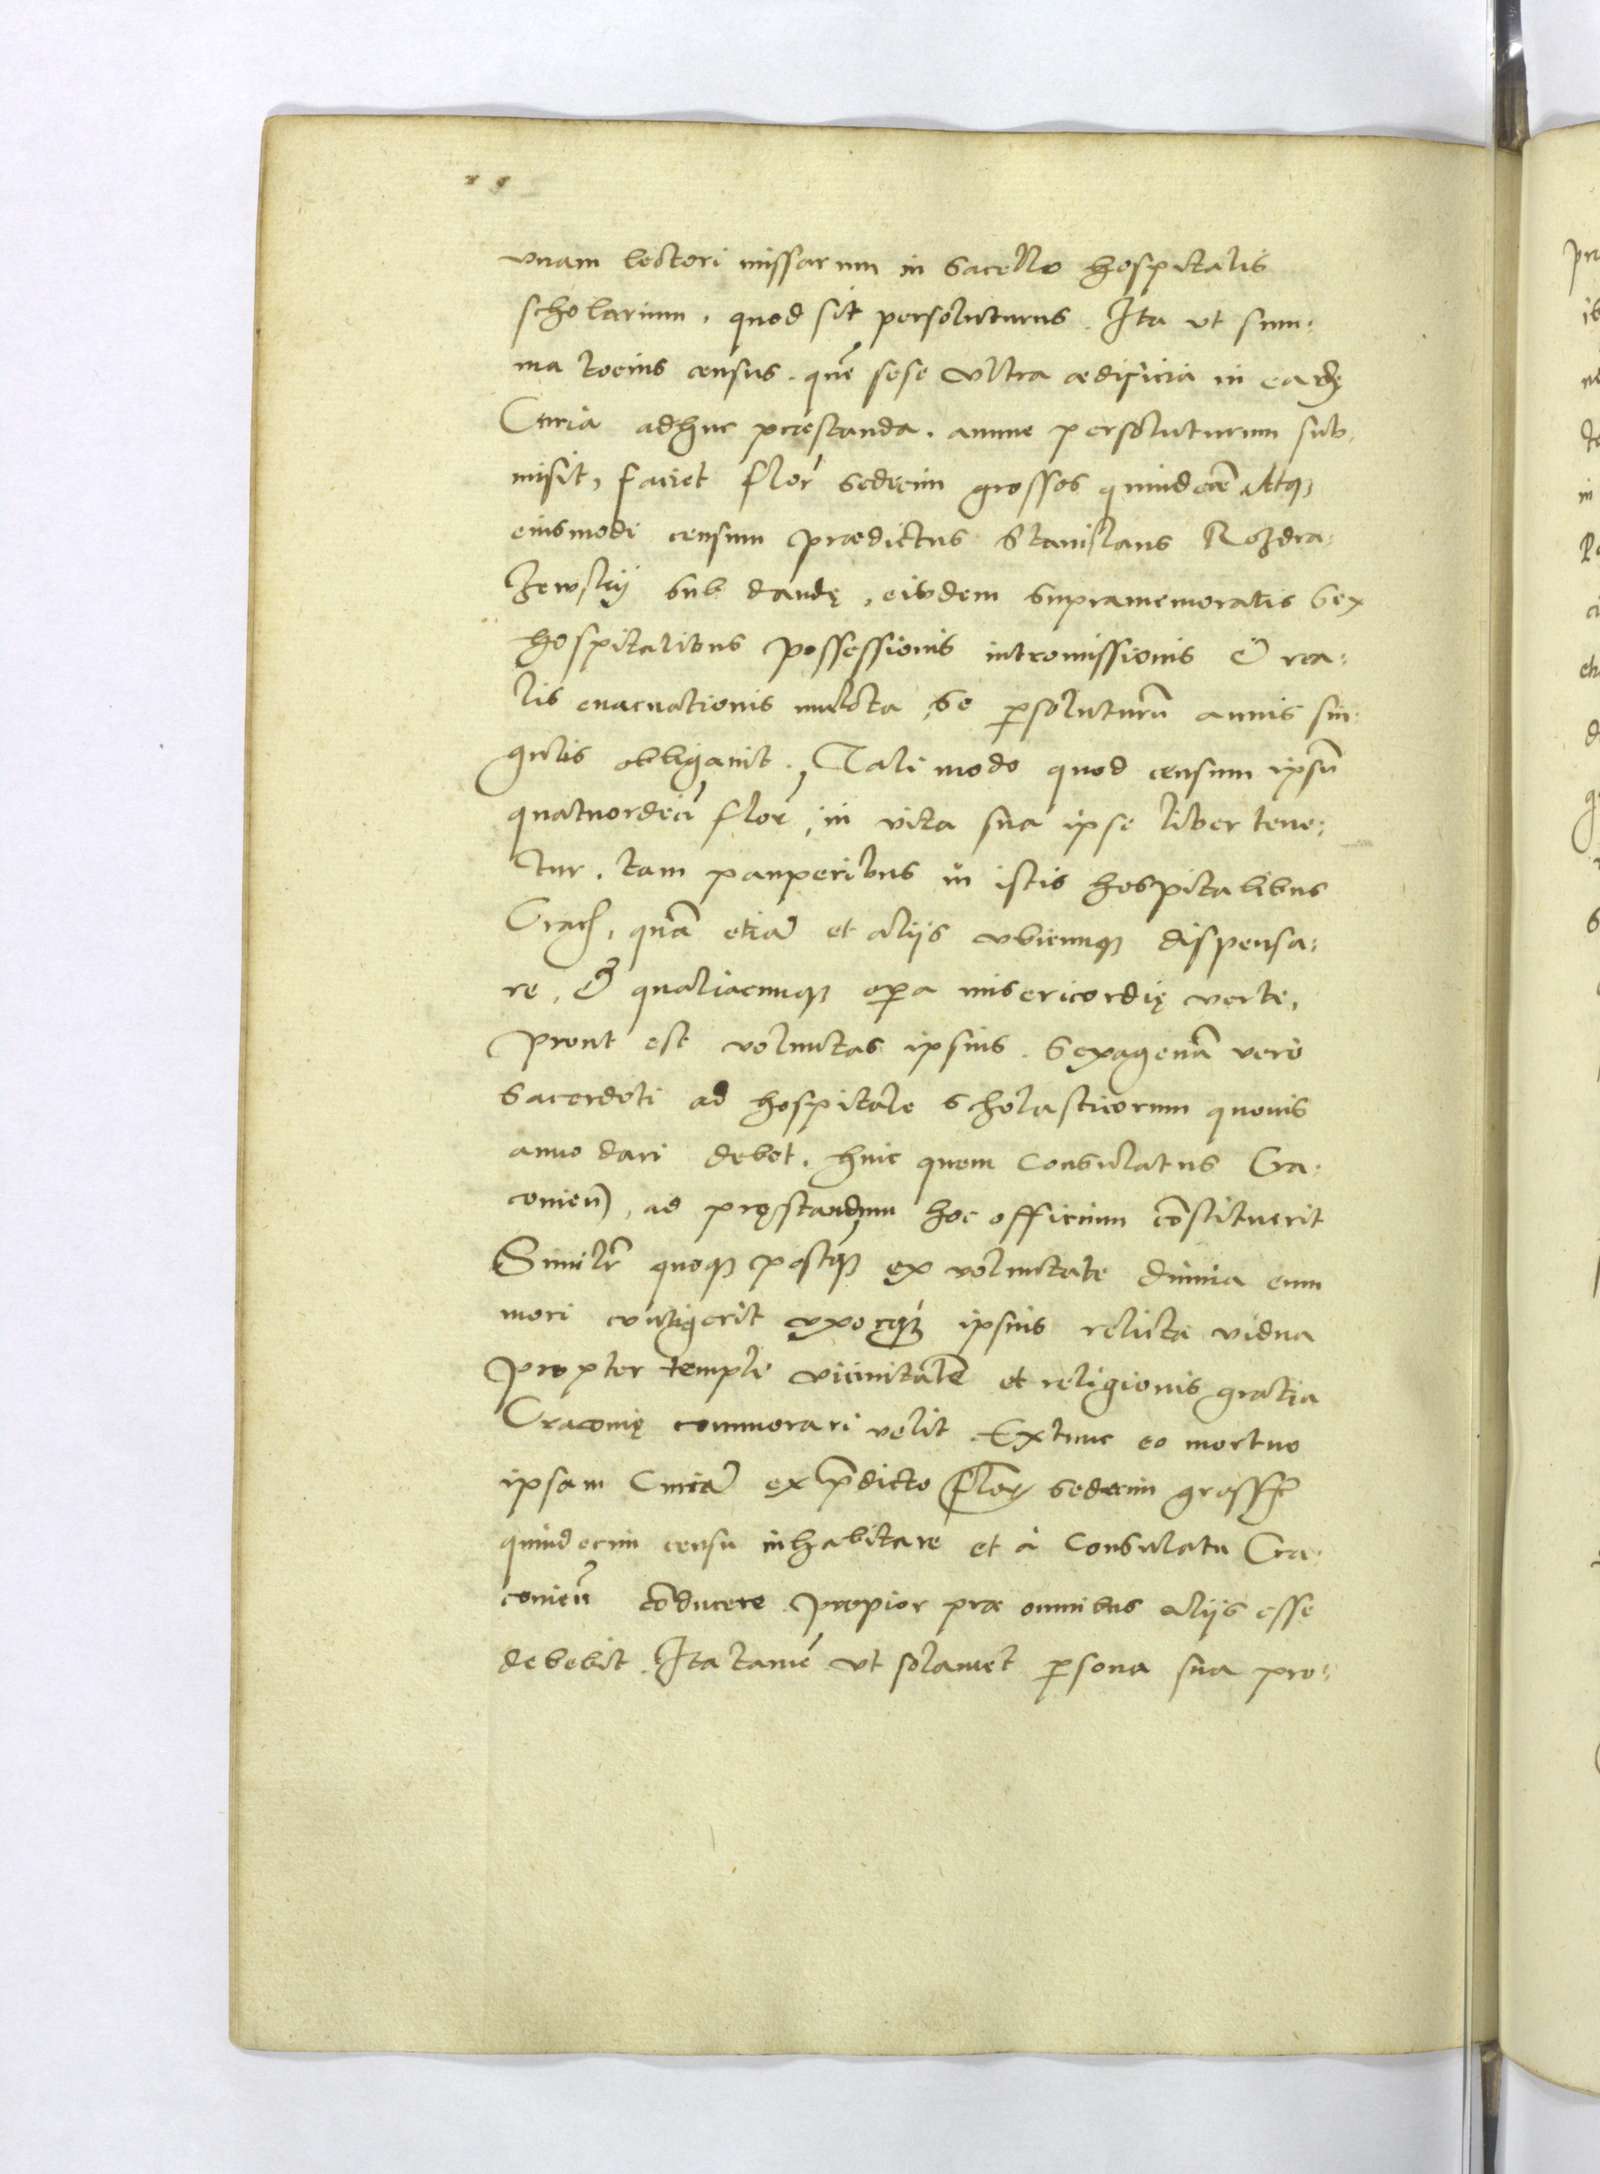 vnam lectori missarum in sacello hospitalis
scholarium, quod sit persoluturus. Ita vt sum:
ma tocius census. que͂ sese vltra aedificia in eadẽ
Curia adhuc praestanda. annue persoluturum sub
misit, faciet flor̃ sedecim grossos quindeci͂ Atqꝫ
eiusmodi censum praedictus Stanislaus Rozdra:
zewskij sub dandę, eisdem supramemoratis sex
hospitalibus possessionis intromissionis & rea:
lis euacuationis mulcta, se ꝑsoluturũ annis sin:
gulis obligauit. Tali modo quod censum ipsũ
quatuordeci͂ flor̃, in vita sua ipse liber tene:
tur, tam pauperibus in istis hospitalibus
Crac̃, quã etiã et aliis vbicunqꝫ dispensa:
re, & qualiacunqꝫ oꝑa misericordię verte,
prout est voluntas ipsius. Sexagenã verò
sacerdoti ad hospitale scholasticorum quouis
anno dari debet. huic quem Consulatus Cra:
couien̄, ad pręstandum hoc officium cõstituerit
Similr̃ quoqꝫ postqꝫ ex voluntate diuina eum
mori contigerit vxorqꝫ ipsius relicta vidua
propter templi vicinitatẽ et religionis gratia
Cracouię commorari velit. Extunc eo mortuo
ipsam Curiã ex p̃dicto flor̃ sedecim gross̃
quindecim censu inhabitare et à Consulatu Cra:
couien̄ cõducere propior prae omnibus aliis esse
debebit. Ita tame͂ vt solamet ꝑsona sua pro: